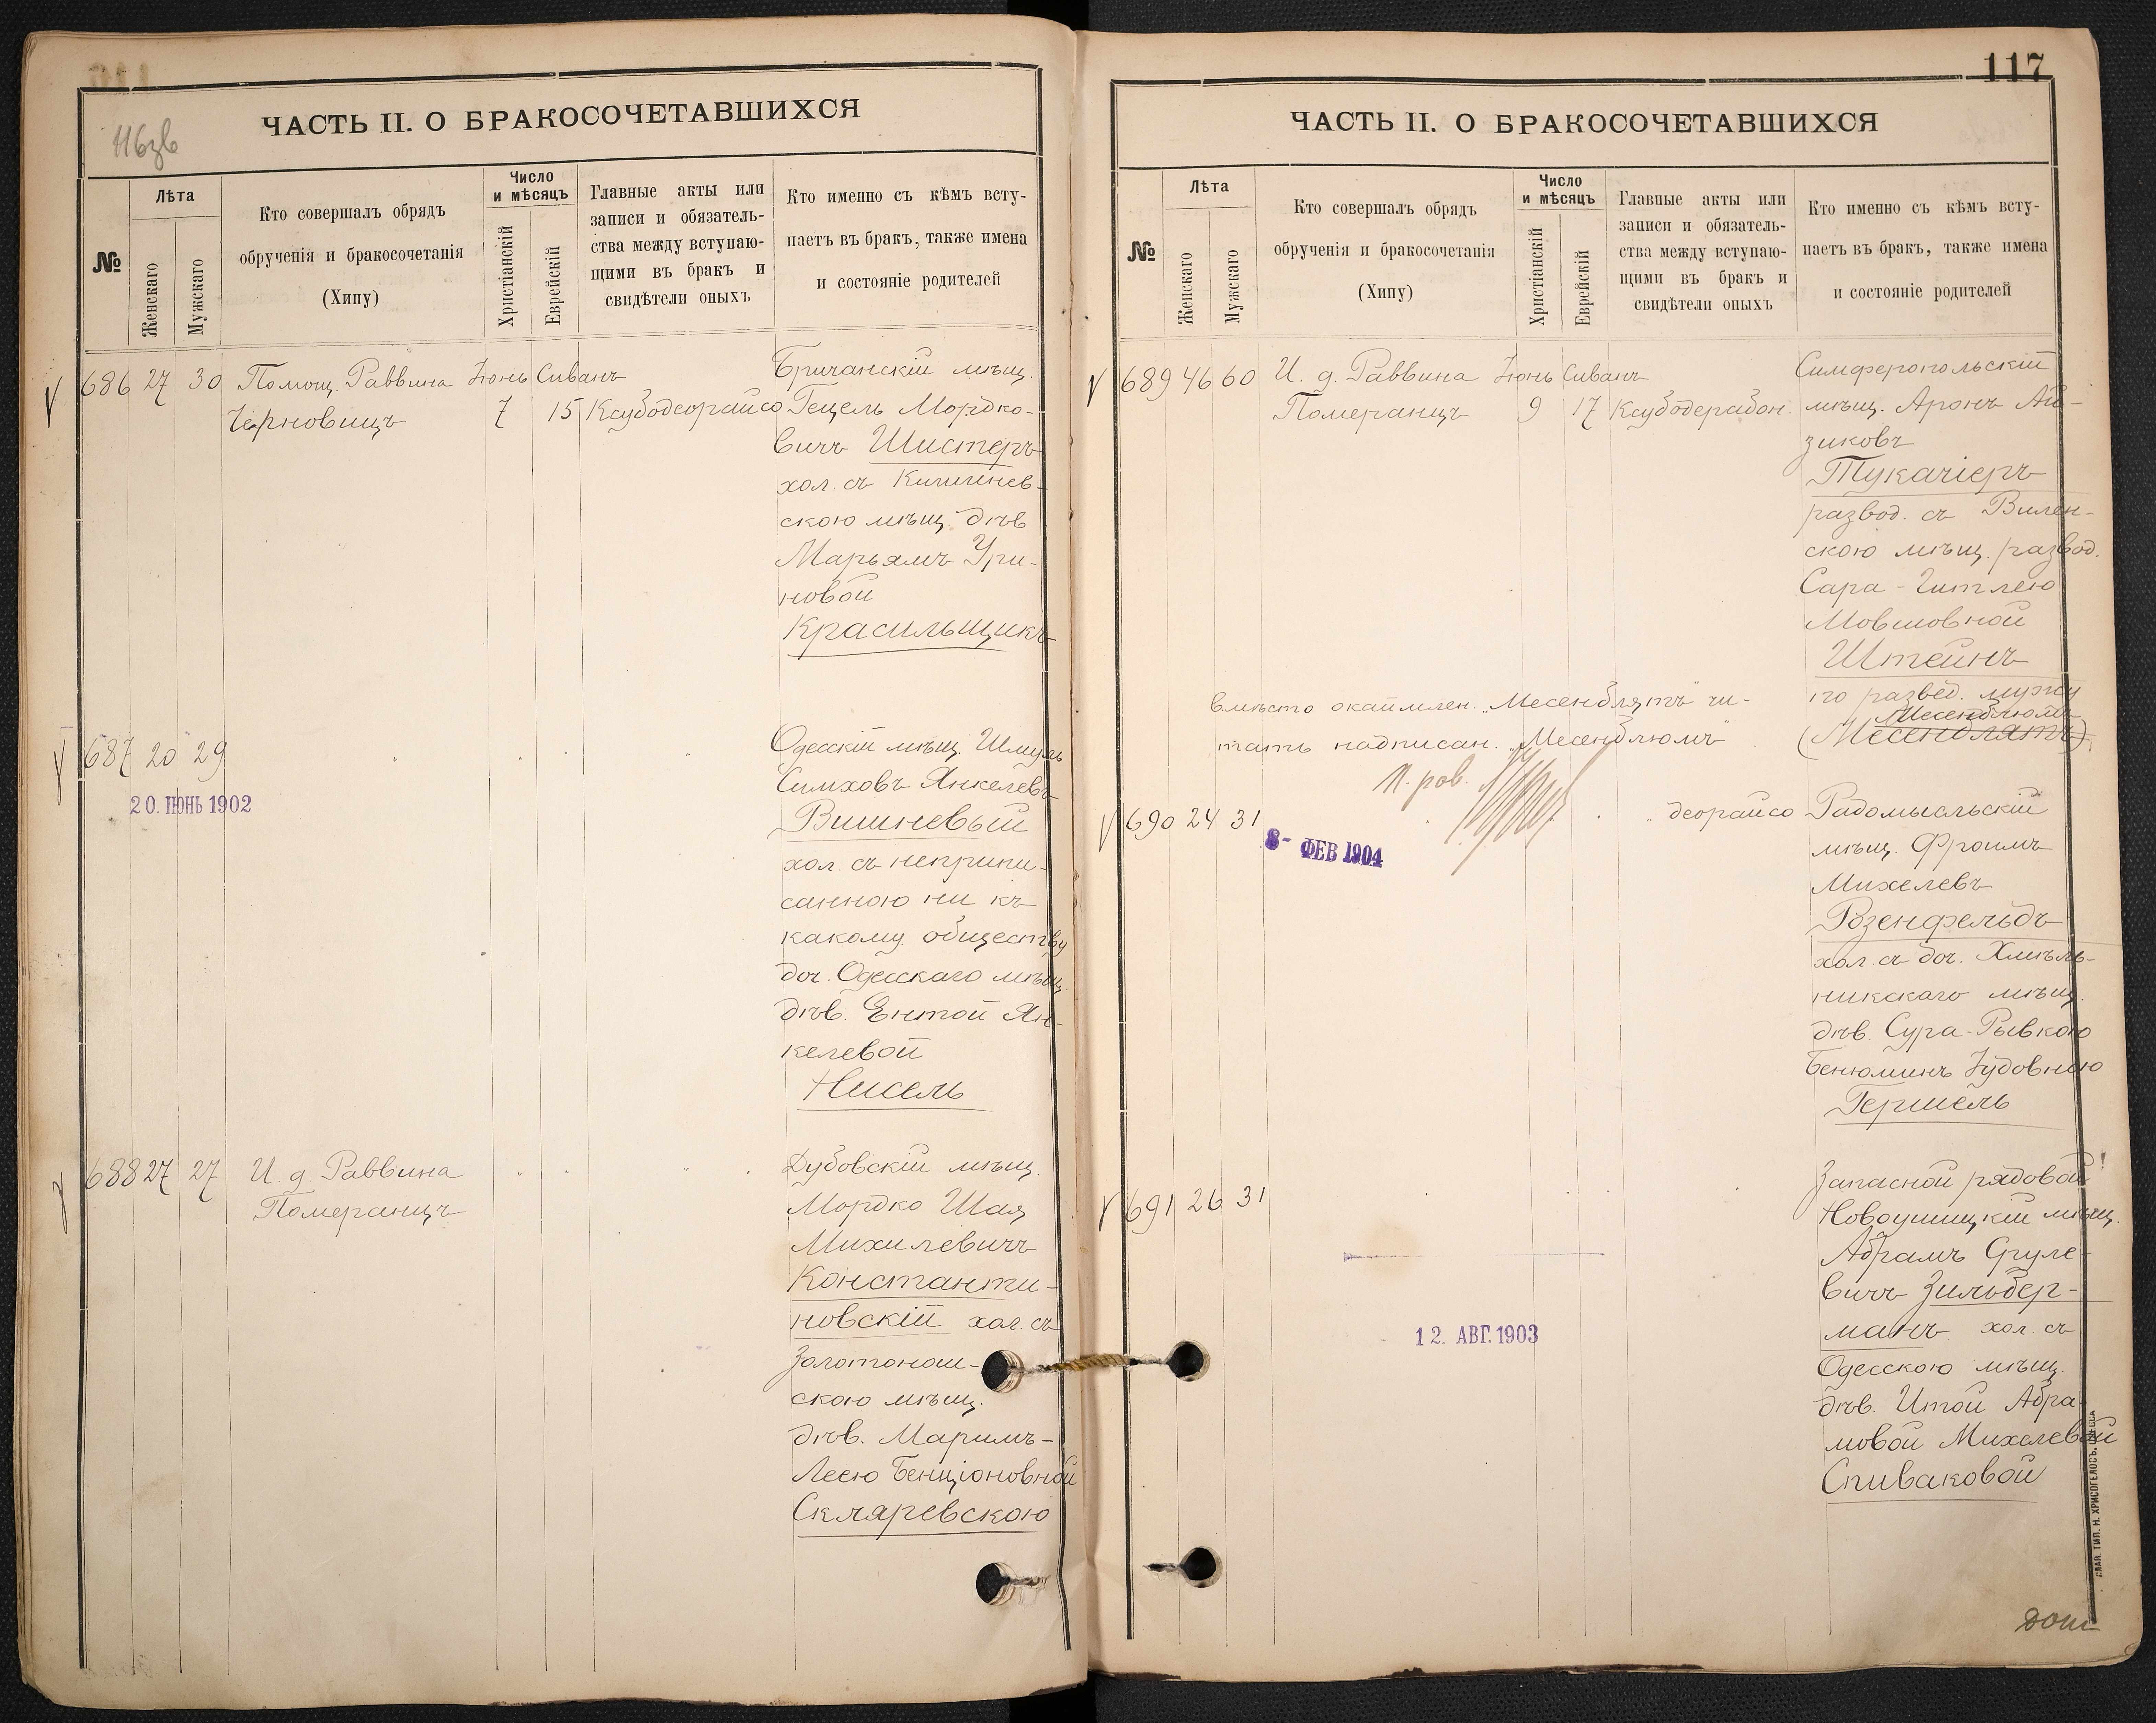 116зв
ЧАСТЬ II. О БРАКОСОЧЕТАВШИХСЯ
№
Лѣта
Женскаго
Мужскаго
Кто совершалъ обрядъ
обрученія и бракосочетанія
(Хипу)
Число
и мѣсяцъ
Христіанскій
Еврейскій
Главные акты или
записи и обязатель-
ства между вступаю-
щими въ бракъ и
свидѣтели оныхъ
Кто именно съ кѣмъ всту-
паетъ въ бракъ, также имена
и состояніе родителей
686 27 30 Помощ. Раввина Іюнь Сиванъ
Черновицъ 7 15 Ксубодеорайсо
Бричанскій мѣщ.
Гецель Мордко-
вичъ Шистеръ
хол. съ Кишинев-
скою мѣщ. дѣв
Марьямъ Ури-
новой
Красильщикъ
687 20 29
20. ІЮНЬ 1902
Одесскій мѣщ. Шмуль
Симховъ Янкелевъ
Вишневый
хол. съ неприпи-
санною ни къ
какому обществу
доч. Одесскаго мѣщ.
дѣв. Ентой Ян-
келевой
Нисель
688 27 27 И. д. Раввина
Померанцъ
Дубовскій мѣщ.
Мордко Шая
Михилевичъ
Константи-
новскій хол. съ
Золотонош-
скою мѣщ.
дѣв. Маримъ-
Леею Бенціоновной
Скляревскою
117
ЧАСТЬ II. О БРАКОСОЧЕТАВШИХСЯ
№
Лѣта
Женскаго
Мужскаго
Кто совершалъ обрядъ
обрученія и бракосочетанія
(Хипу)
Число
и мѣсяцъ
Христіанскій
Еврейскій
Главные акты или
записи и обязатель-
ства между вступаю-
щими въ бракъ и
свидѣтели оныхъ
Кто именно съ кѣмъ всту-
паетъ въ бракъ, также имена
и состояніе родителей
689 46 60 И. д. Раввина Іюнь Сиванъ
Померанцъ 9 17 Ксубодерабон.
Симферопольскій
мѣщ. Аронъ Ай-
зиковъ
Тукачіеръ
развод. съ Вилен-
скою мѣщ. развод.
Сара-Гитлею
Мовшовной
Штейнъ
по развед. мужу
Месенблюмъ
(Месенблятъ)
вмѣсто окаймлен. „Месенблятъ" чи-
тать надписан. „Месенблюмъ"
П. рав.
690 24 31 " деорайсо
8- ФЕВ 1904
Радомысльскій
мѣщ. Фроимъ
Михелевъ
Розенфельдъ
хол. съ доч. Хмѣль-
никскаго мѣщ.
дѣв. Сура-Рывкою
Бенюминъ Іудовною
Гершель
691 26 31
12. АВГ. 1903
Запасной рядовой
Новоушицкій мѣщ.
Абрамъ Сруле-
вичъ Зильбер-
манъ хол. съ
Одесскою мѣщ.
дѣв. Итой Абра-
мовой Михелевой
Спиваковой
СЛАВ. ТИП. Н. ХРИСОГЕЛОСЪ. ОДЕССА